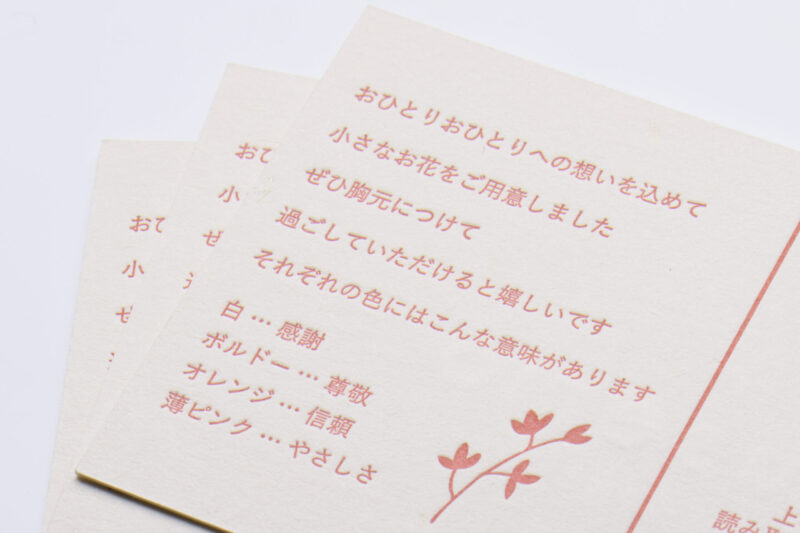 おひとりおひとりへの想いを込めて
小さなお花をご用意しました
ぜひ胸元につけて
過ごしていただけると嬉しいです
それぞれの色にはこんな意味があります
白 … 感謝
ボルドー … 尊敬
オレンジ … 信頼
薄ピンク … やさしさ
上
読み
おひ
小
ぜ
過
おひ
小
ぜ